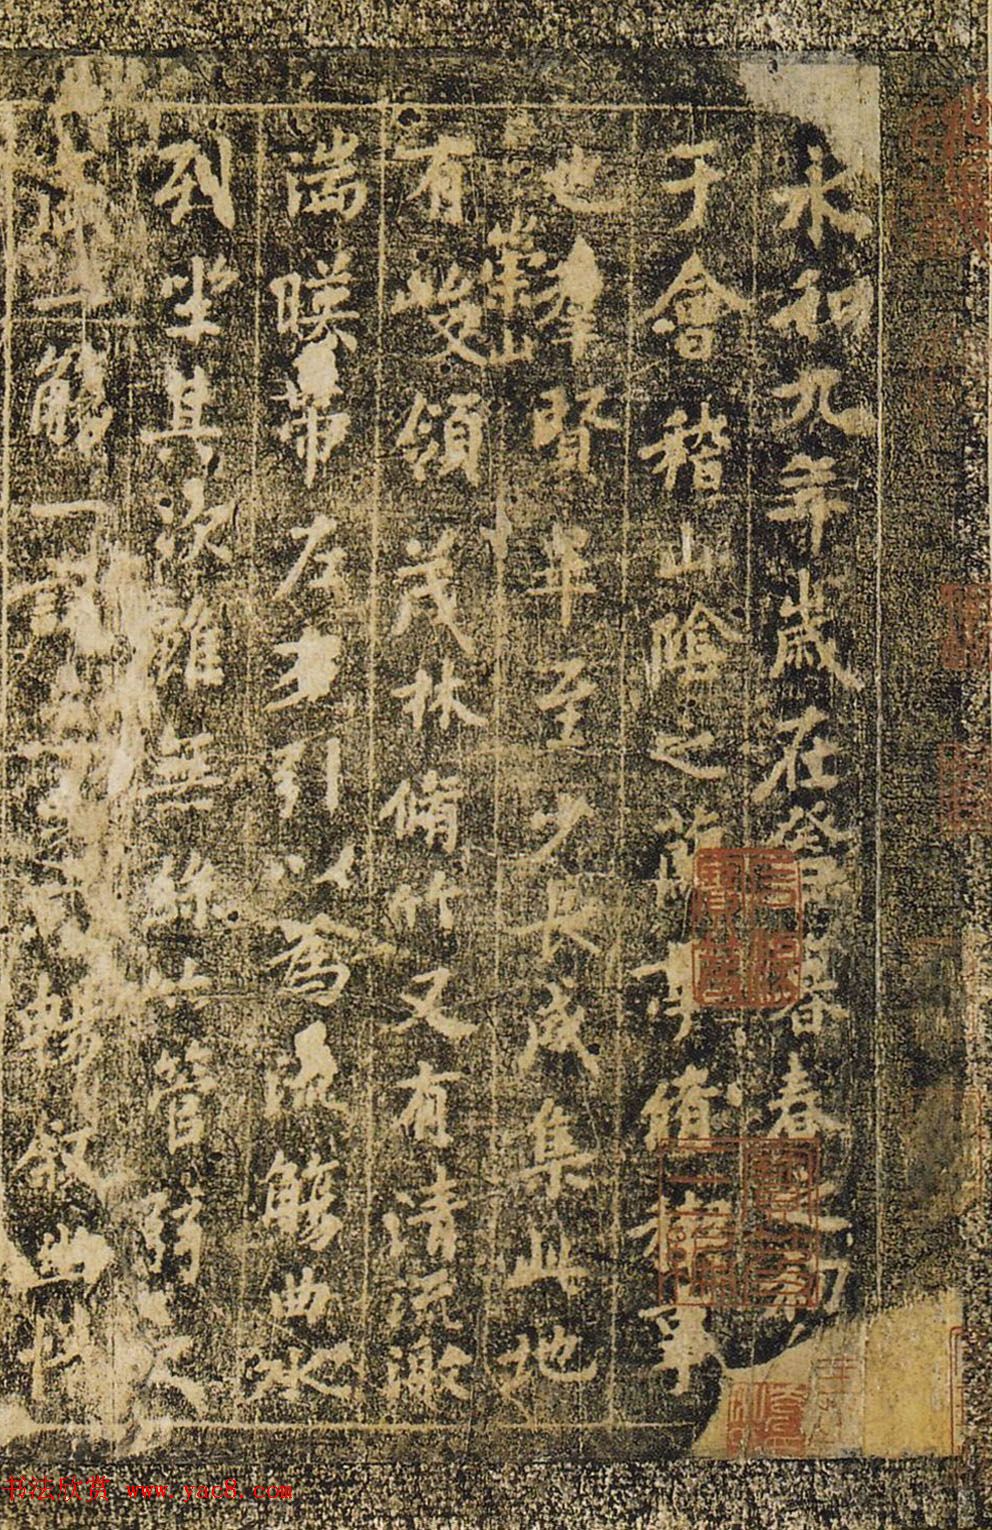 永和九年歲在癸丑暮春之初
于會稽山陰之蘭亭脩禊事
也羣賢畢至少長咸集此地
崇山
有峻領茂林脩竹又有清流激
湍暎帶左右引以為流觴曲水
列坐其次雖無絲竹管弦
盛一觴一詠亦暢敘幽情
书法欣赏 www.yac8.com